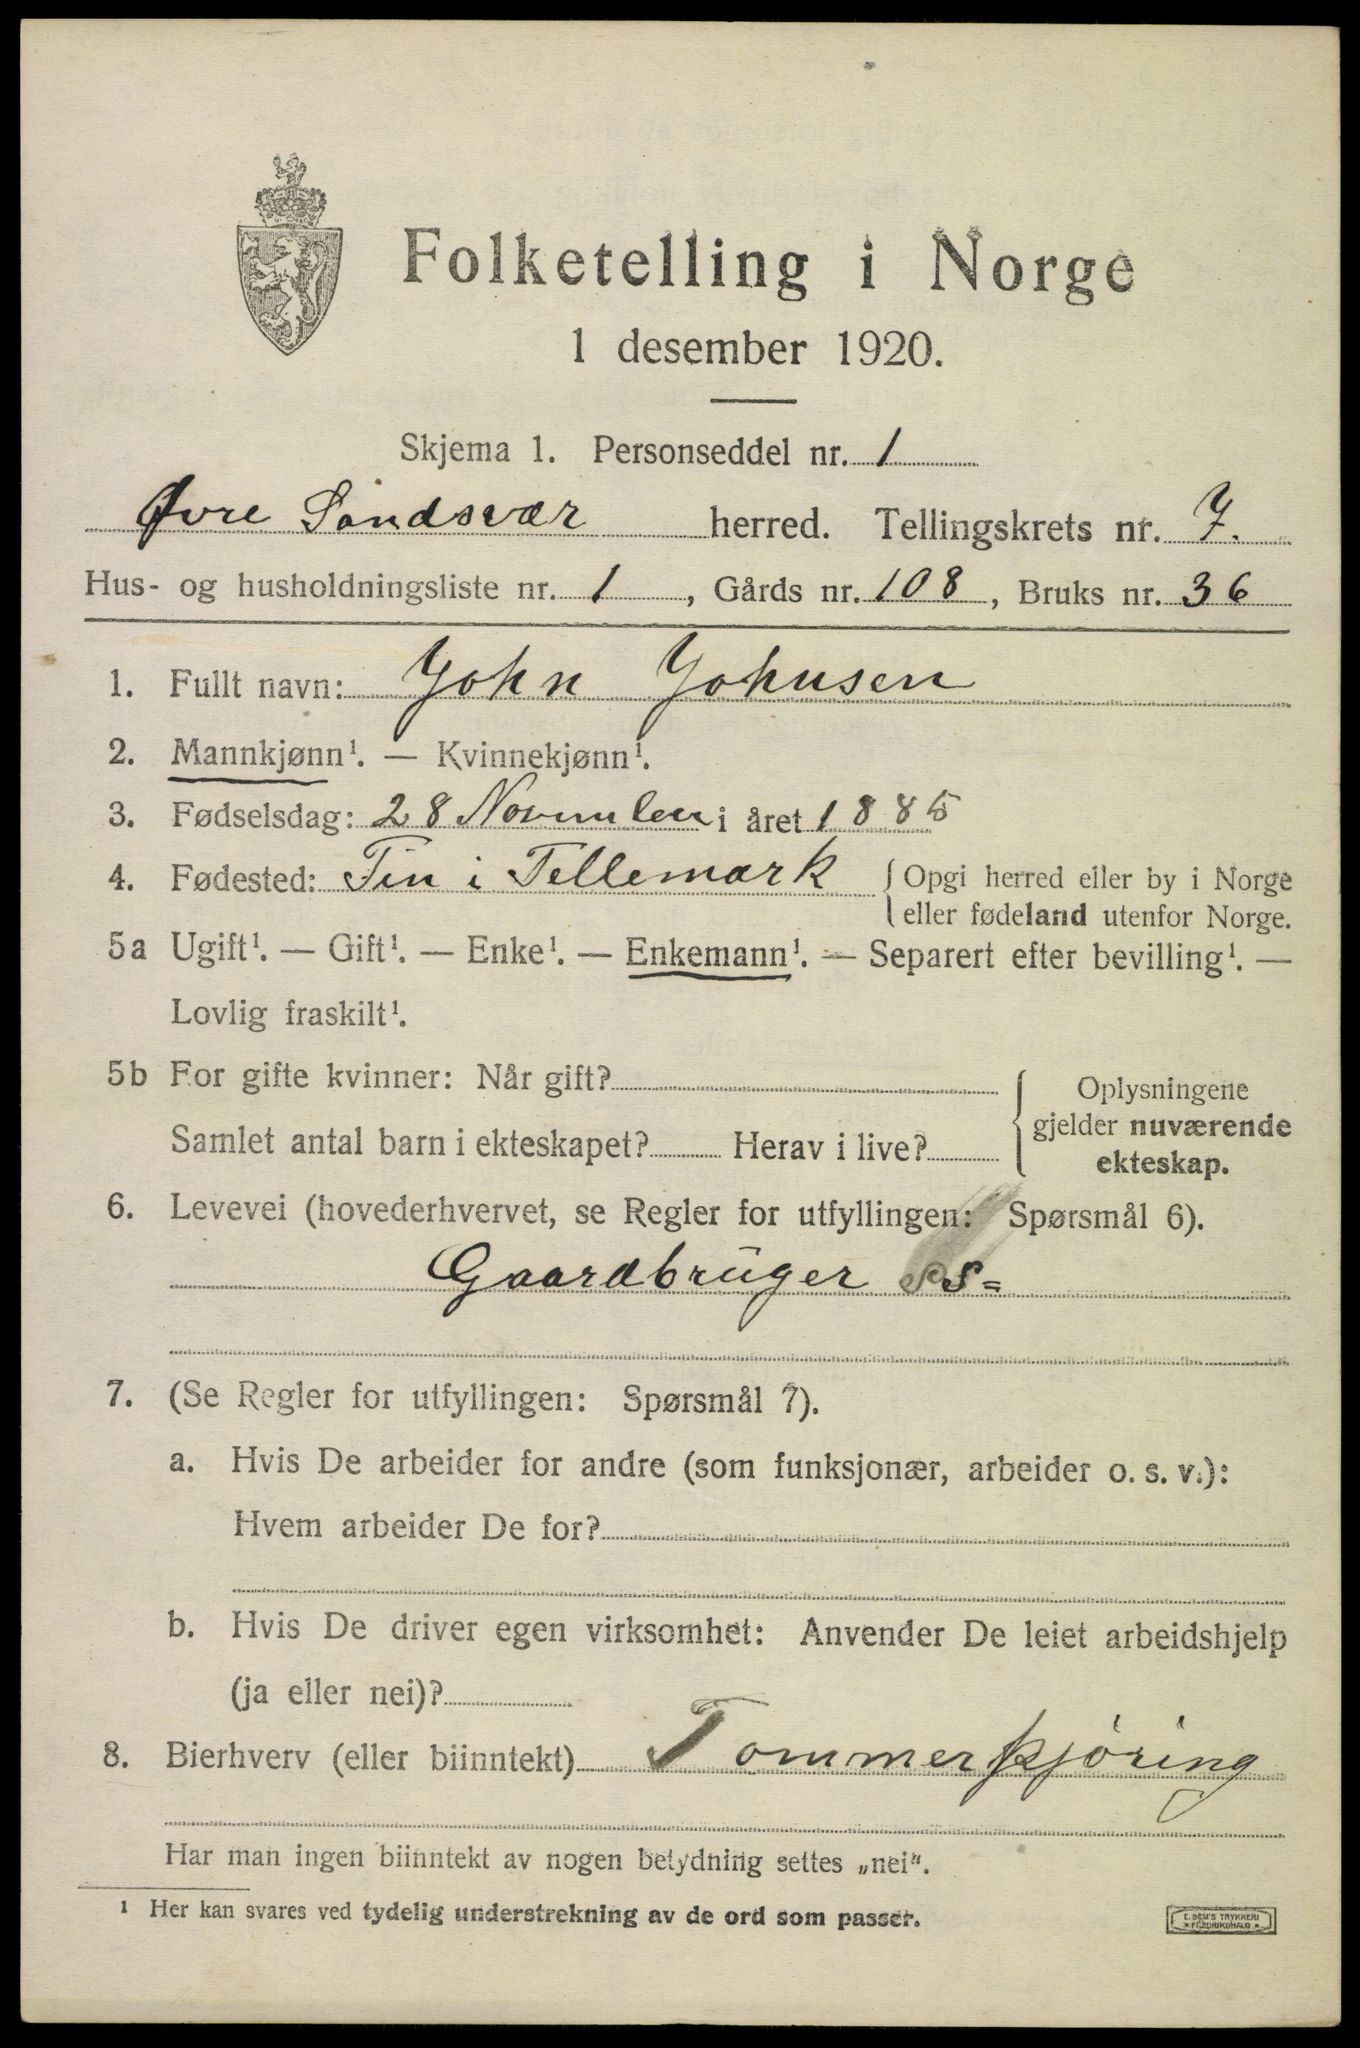 Folketelling i Norge
1 desember 1920.
Skjema 1. Personseddel nr. 1
Øvre Sandsvær herred. Tellingskrets nr. 7.
Hus- og husholdningsliste nr. 1, Gårds nr. 108, Bruks nr. 36
1. Fullt navn: John Johnsen
2. Mannkjønn¹. — Kvinnekjønn¹.
3. Fødselsdag: 28 November i året 1885
4. Fødested: Tin i Tellemark { Opgi herred eller by i Norge
eller fødeland utenfor Norge.
5a Ugift¹. — Gift¹. — Enke¹. — Enkemann¹. — Separert efter bevilling¹. —
Lovlig fraskilt¹.
5b For gifte kvinner: Når gift? { Oplysningene
gjelder nuværende
Samlet antal barn i ekteskapet? Herav i live?
ekteskap.
6. Levevei (hovederhvervet, se Regler for utfyllingen: Spørsmål 6).
Gaardbruger S=
7. (Se Regler for utfyllingen: Spørsmål 7).
a. Hvis De arbeider for andre (som funksjonær, arbeider o. s. v.):
Hvem arbeider De for?
b. Hvis De driver egen virksomhet: Anvender De leiet arbeidshjelp
(ja eller nei)?
8. Bierhverv (eller biinntekt) Tommerkjöring
Har man ingen biinntekt av nogen betydning settes „nei".
¹ Her kan svares ved tydelig understrekning av de ord som passer.
E. SEM'S TRYKKERI
* FREDRIKSHALD *